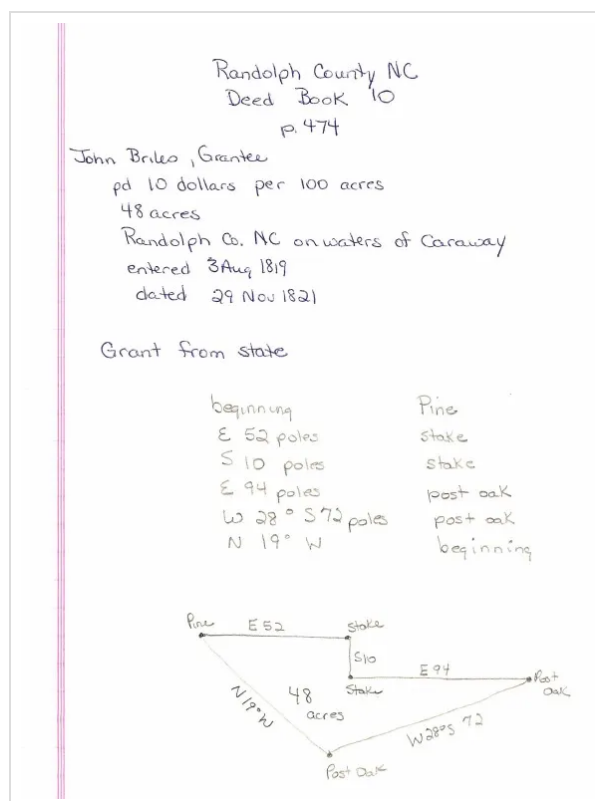 Randolph County NC
Deed Book 10
p. 474
John Briles, Grantee
pd 10 dollars per 100 acres
48 acres
Randolph Co. NC on waters of Caraway
entered 3 Aug 1819
dated 29 Nov 1821
Grant from state
beginning Pine
E 52 poles stake
S 10 poles stake
E 94 poles post oak
W 28° S 72 poles post oak
N 19° W beginning
Pine E 52 Stake
S10
E 94
Stake
Post Oak
N 19° W
48 acres
W 28° S 72
Post Oak